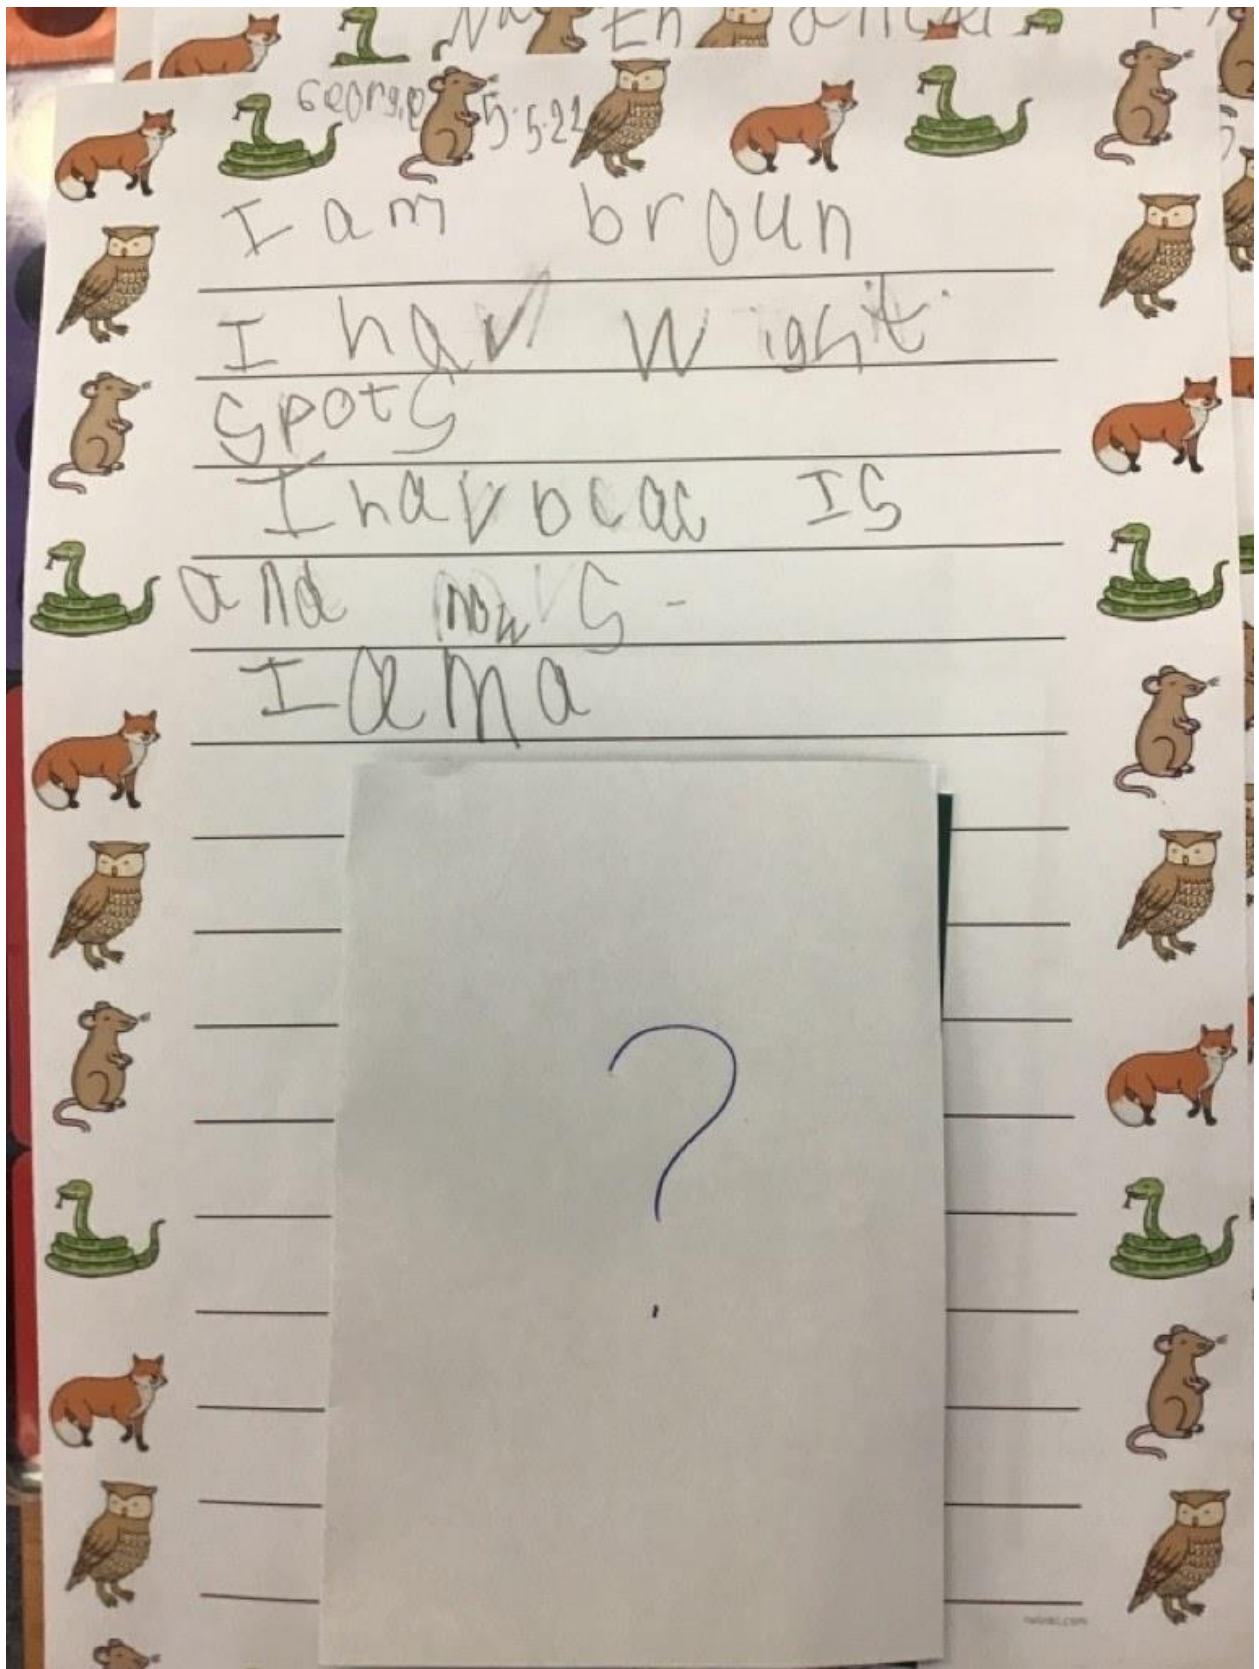 En
George 5.5.22
I am broun
I hav wight.
spots
I hav bcac Is
and nows -
I am a
?